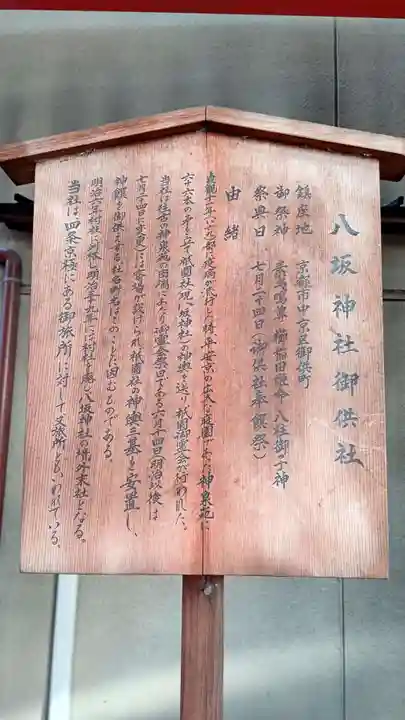 八坂神社御供社
鎮座地　京都市中京区御供町
御祭神　素戔嗚尊・櫛稲田姫命・八柱御子神
祭典日　七月二十四日（御供社奉饌祭）
由緒
貞観十一年(八六九)都に疫病が流行した時、平安京の広大な庭園であった神泉苑に
六十六本の矛を立て、祇園社(現八坂神社)の神輿を送り祇園御霊会が行われた。
当社は往古の神泉苑の南端にあたり御霊会祭日である六月十四日(明治以後は
七月二十四日に変更)には斎場が設けられ祇園社の神輿三基を安置し、
神饌を御供えする。社名町名はこのことに因むものである。
明治六年村社に列格し明治三十九年には村社を廃し八坂神社の境外末社となる。
当社は、四条京極にある御旅所に対して又旅所ともいわれている。